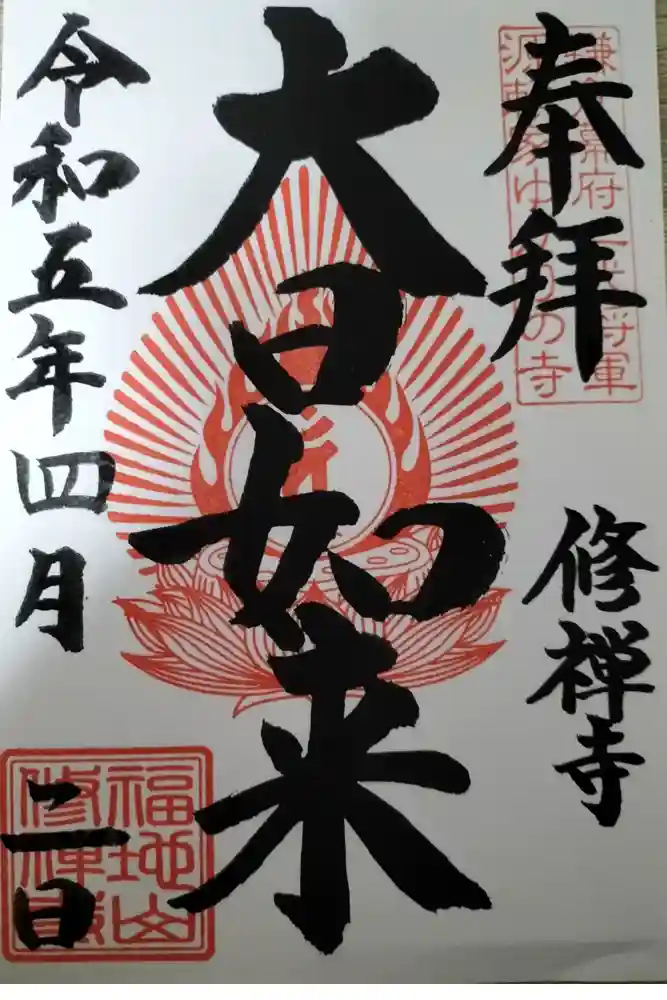 奉拝
鎌倉幕府二代将軍
源頼家ゆかりの寺
修禅寺
大日如来
令和五年四月
二日
福地山
修禅